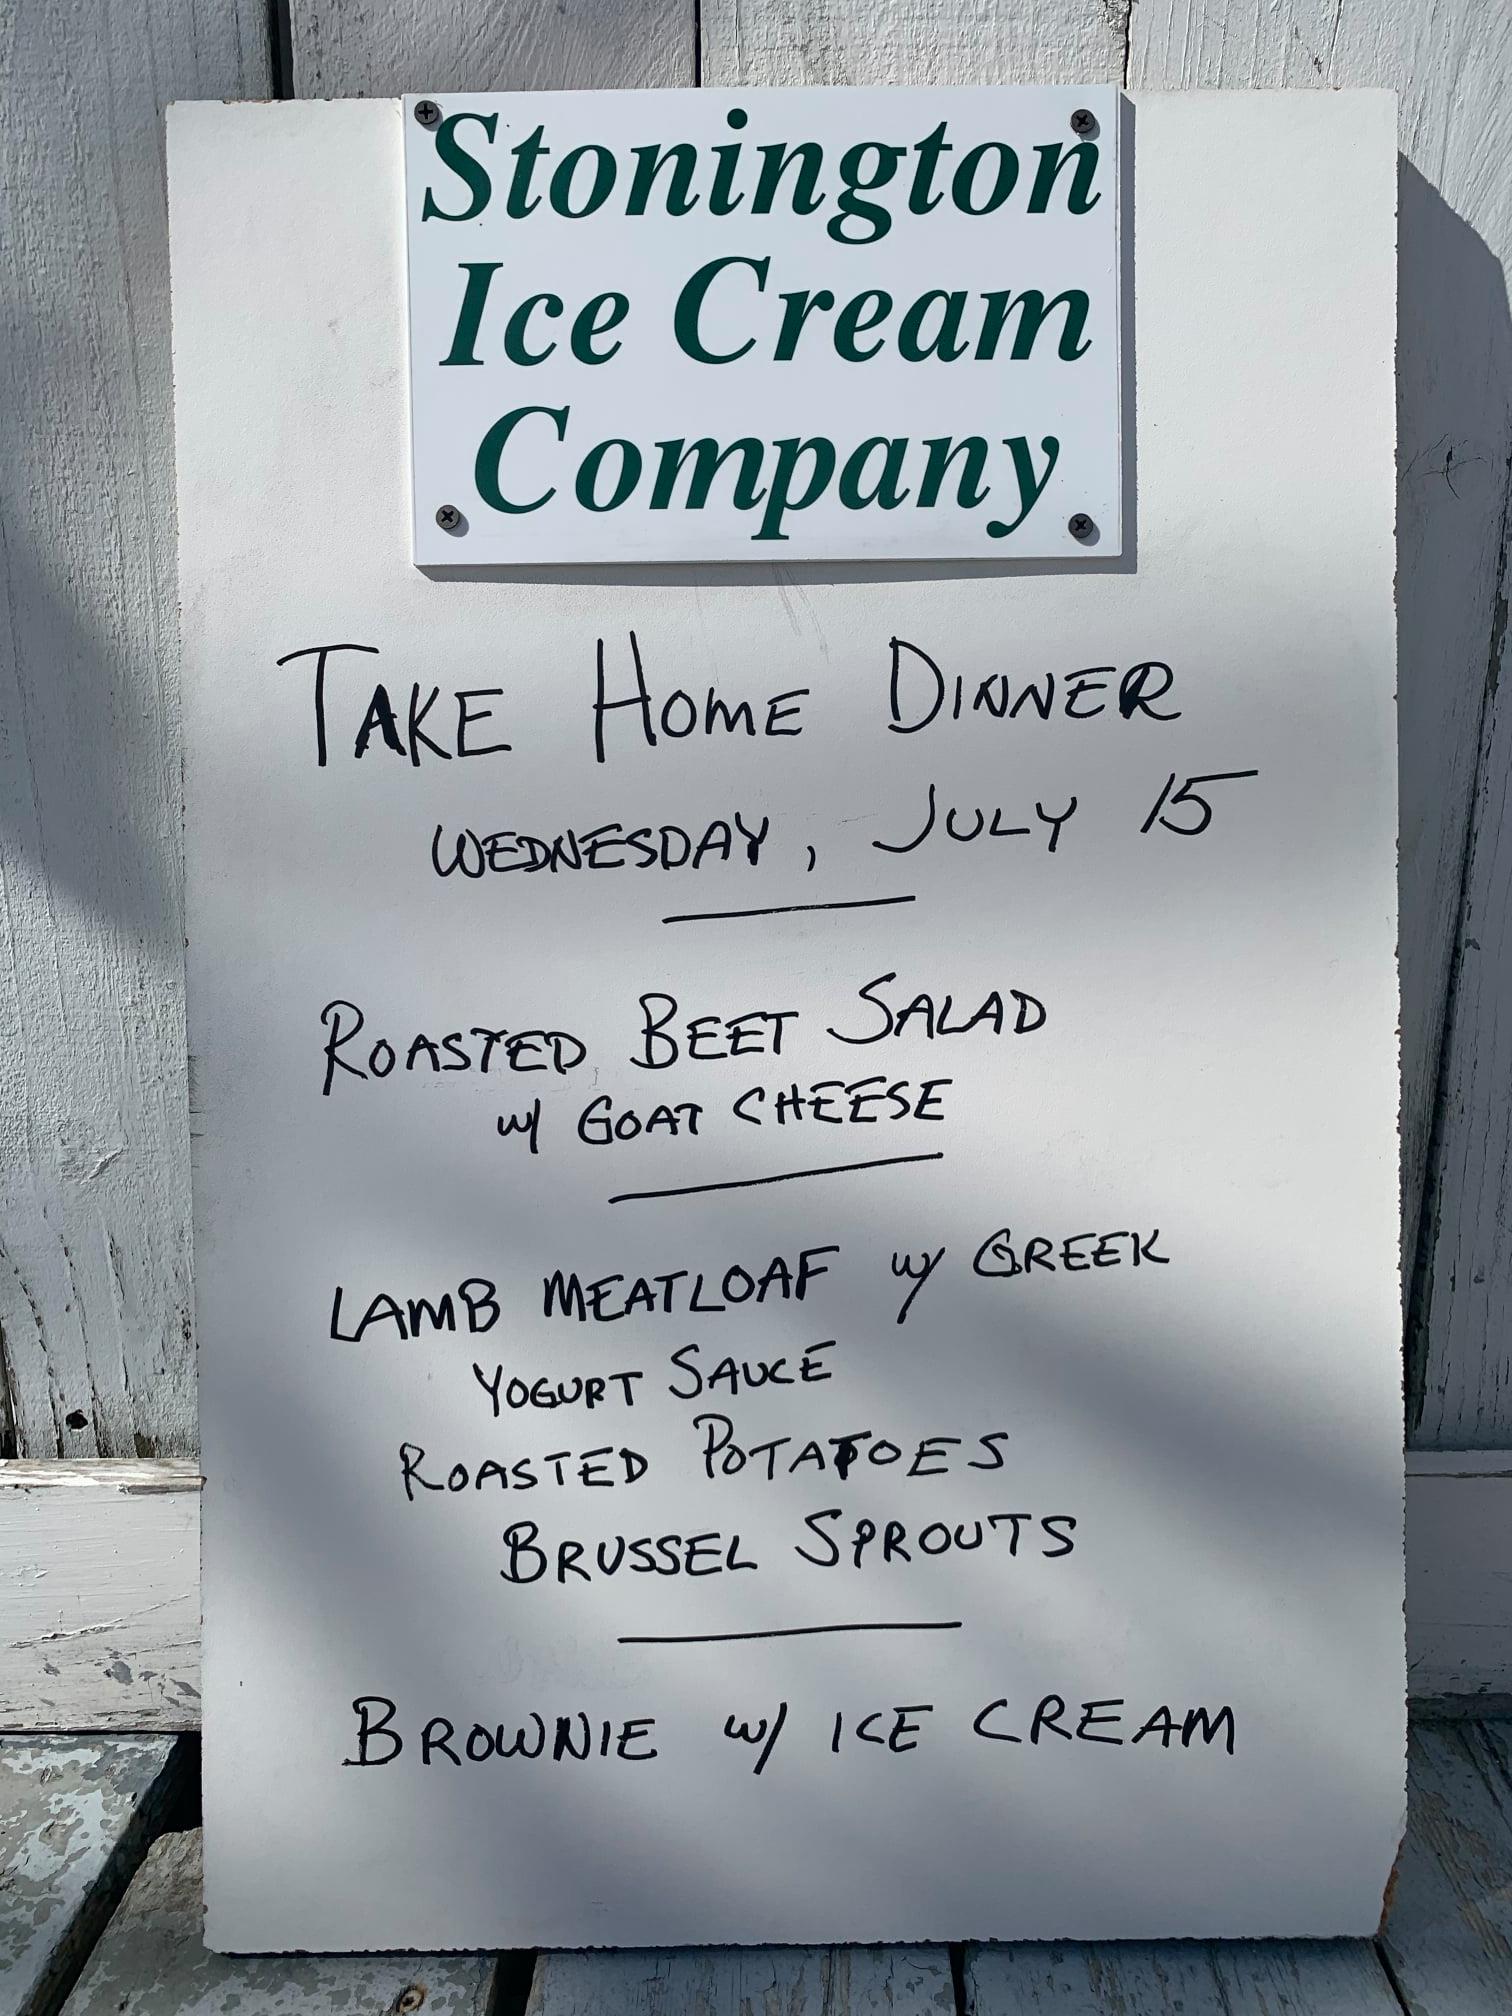 Stonington
Ice Cream
Company
TAKE HOME DINNER
WEDNESDAY, JULY 15
ROASTED BEET SALAD
w/ GOAT CHEESE
LAMB MEATLOAF w/ GREEK
YOGURT SAUCE
ROASTED POTATOES
BRUSSEL SPROUTS
BROWNIE w/ ICE CREAM